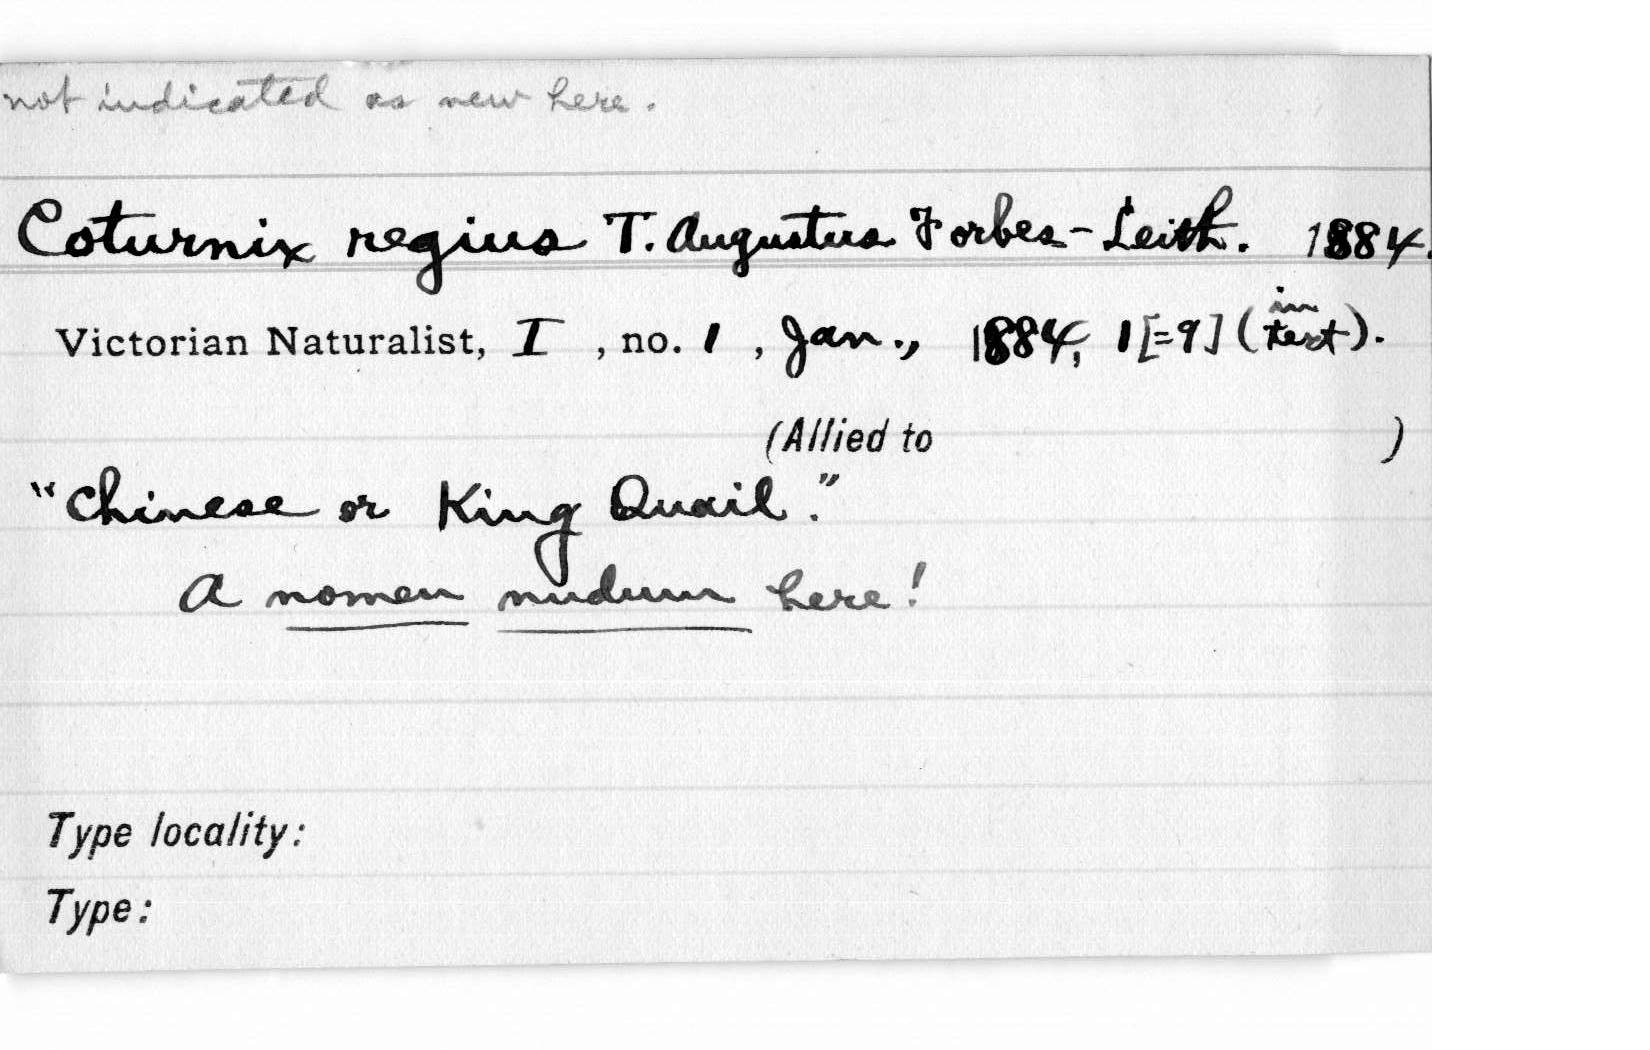 not indicated as new here.
Coturnix regius T. Augustus Forbes-Leith. 1884.
Victorian Naturalist, I, no. 1, Jan., 1884, 1[=9] (in text).
(Allied to )
"Chinese or King Quail."
A nomen nudum here!
Type locality:
Type: